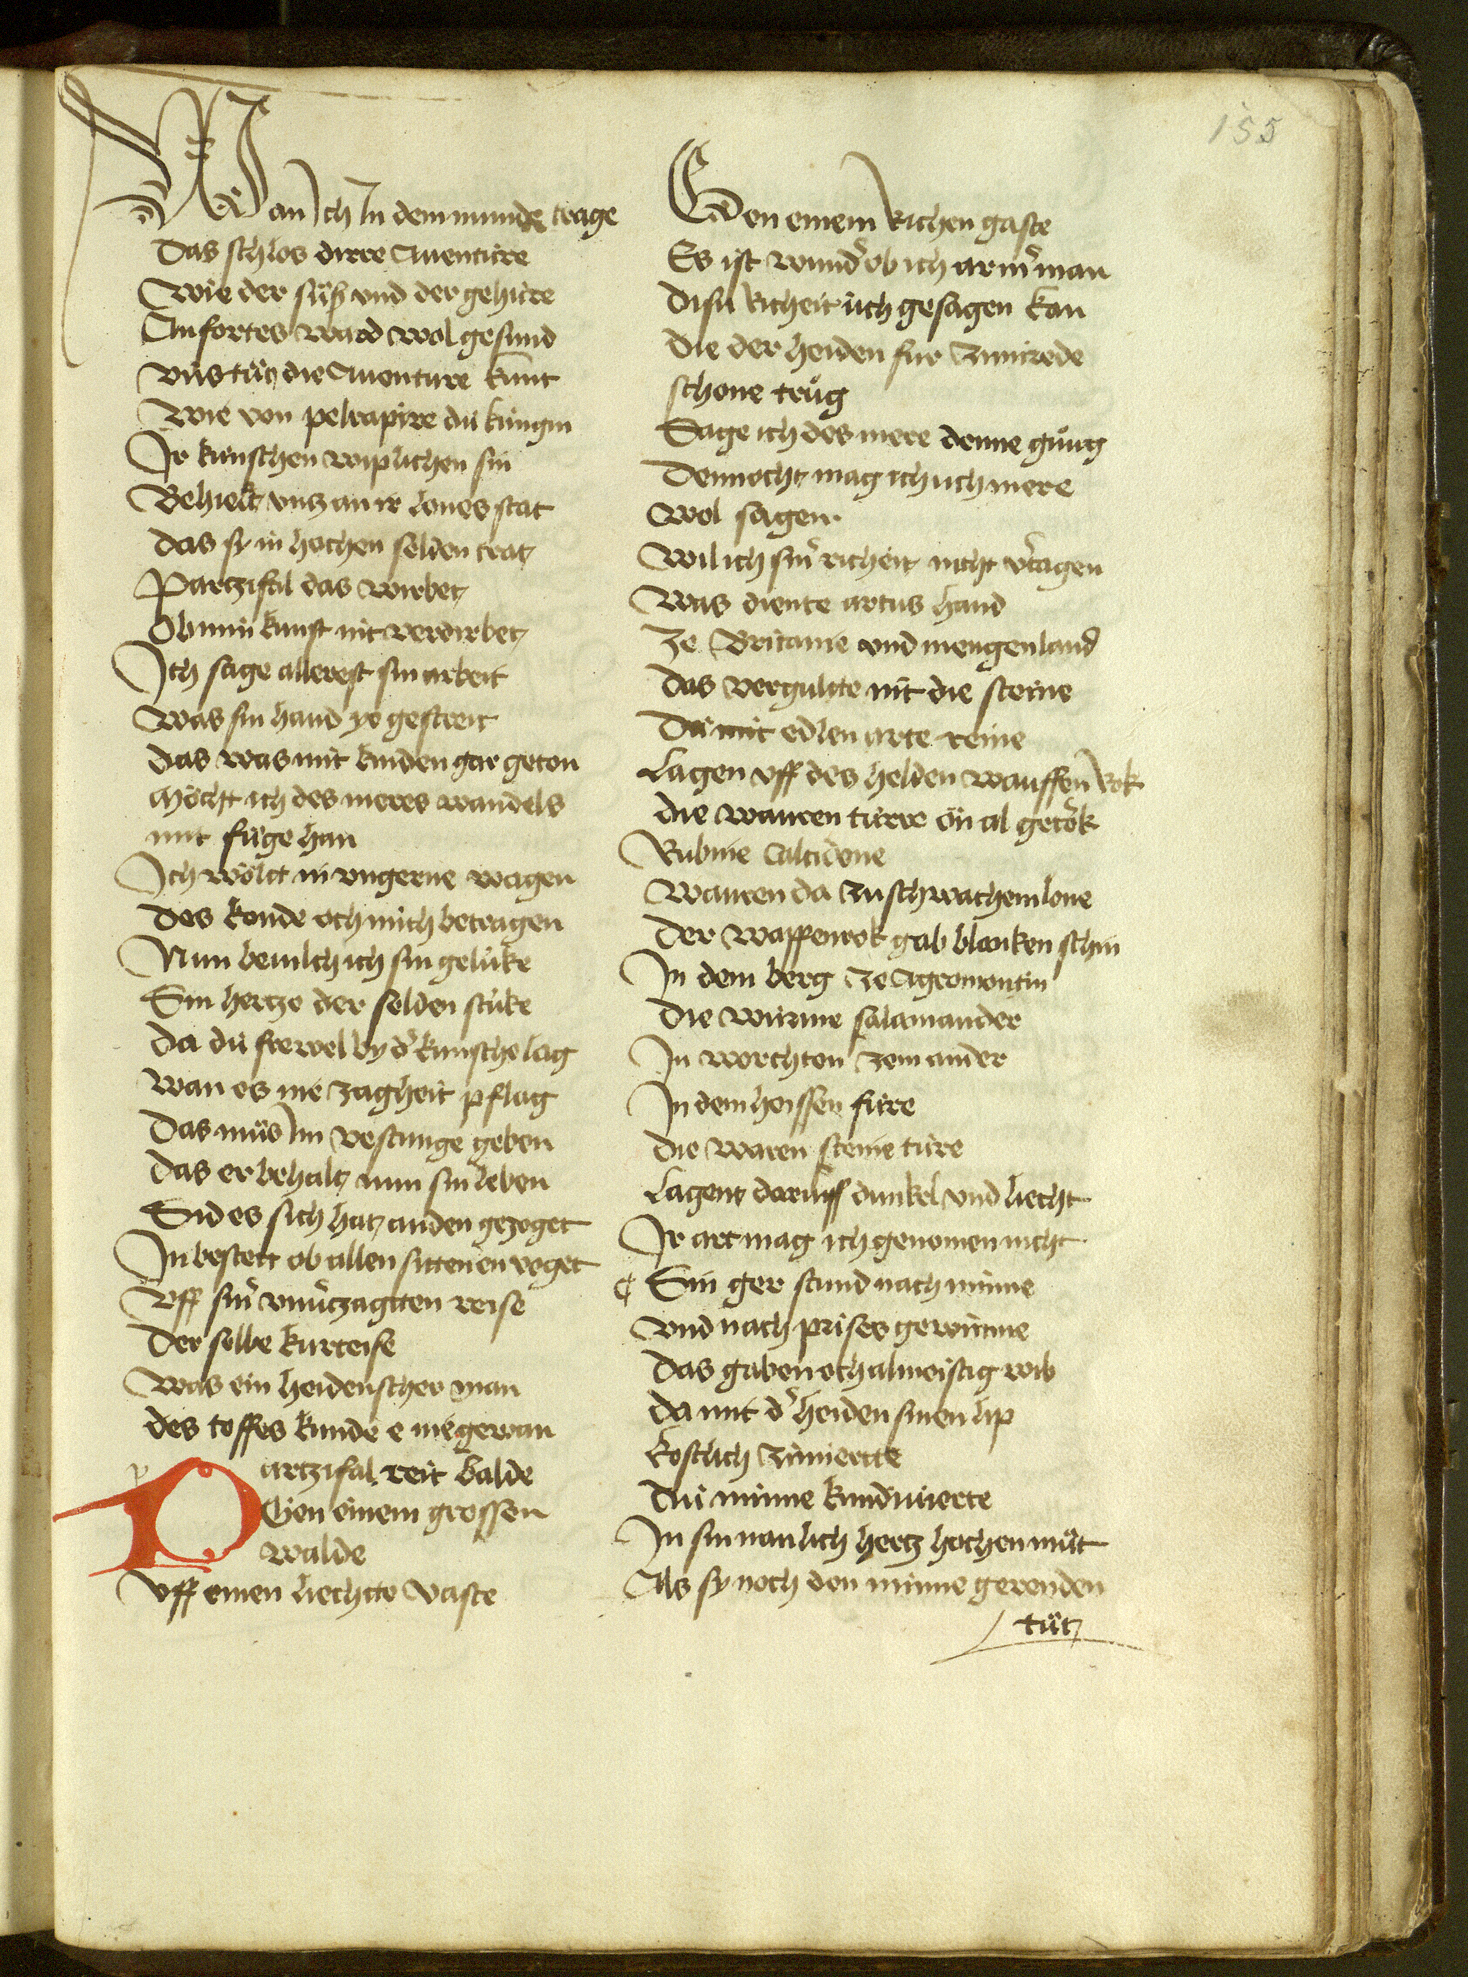 155
Wan ich In dem munde trage
Das schlos dirre Auentúre
Wie der súß vnd der gehúre
Anfortes ward wol gesund
vns tuͦt die Auenture kunt
Wie von pelrapire dú kúngin
Ir kúnschen wiplichen sin
Behielt vntz an ir lones stat
Das sy in hochen selden trat
Partzifal das wirbet
Ob min kunst nit verdirbet
Ich sage allerest sin arbeit
Was sin hand ye gestreit
das was mit kinden gar geton
Möcht ich des meres wandels
mit fuͦge han
Ich wölt in vngerne wagen
Des konde och mich betragen
Nun beuilch ich sin gelúke
Sin hertze der selden stúke
Da dú frevel by d' kúnsche lag
Wan es nie zagheit pflag
Das muͦs Im vestunge geben
Das er behalt nun sin leben
Sid es sich hat an den gezoget
In bestett ob allen stritten en voget
Vff sin' vnu'tzagtten reise
Der selbe kurteise
Was ein heidenscher man
des toffes kunde e nie gewan
Partzifal reit balde
Gen einem grossen
walde
Vff einen liechtte vaste
Gen einem Richen gaste
Es ist wund' ob ich arm' man
Disu Richeit úch gesagen kan
Die der heiden fur zimirede
schone truͦg
Sage ich des mere denne gnuͦg
Dennocht mag ich úch mere
wol sagen
Wil ich sin' richeit nicht v'tagen
Was diente artus hand
Ze Britanie vnd Jnengenland
das vergultte nit die steine
Dú mit edlen arte reine
Lagen vff des helden wauffen Rok
die wauren túrre ön al getrök
Rubine Calcidone
Wauren da zu schwachem lone
Der wappenrok gab blanken schin
In dem berg ze Agremontin
Die wúrme salamander
In worchten zem ander
In dem heissen fúre
die waren steine túre
Lagent daruff dunkel vnd liecht
Ir art mag ich genomen nicht
¢ Sin ger stund nach minne
vnd nach prises gewinne
Das gaben och almeistig wib
Da mit d' heiden sinen lip
kostlich zimiertte
Dú minne kundwierte
In sin manlich hertz hochen muͦt
Als sy noch den minne gerenden
tuͦt